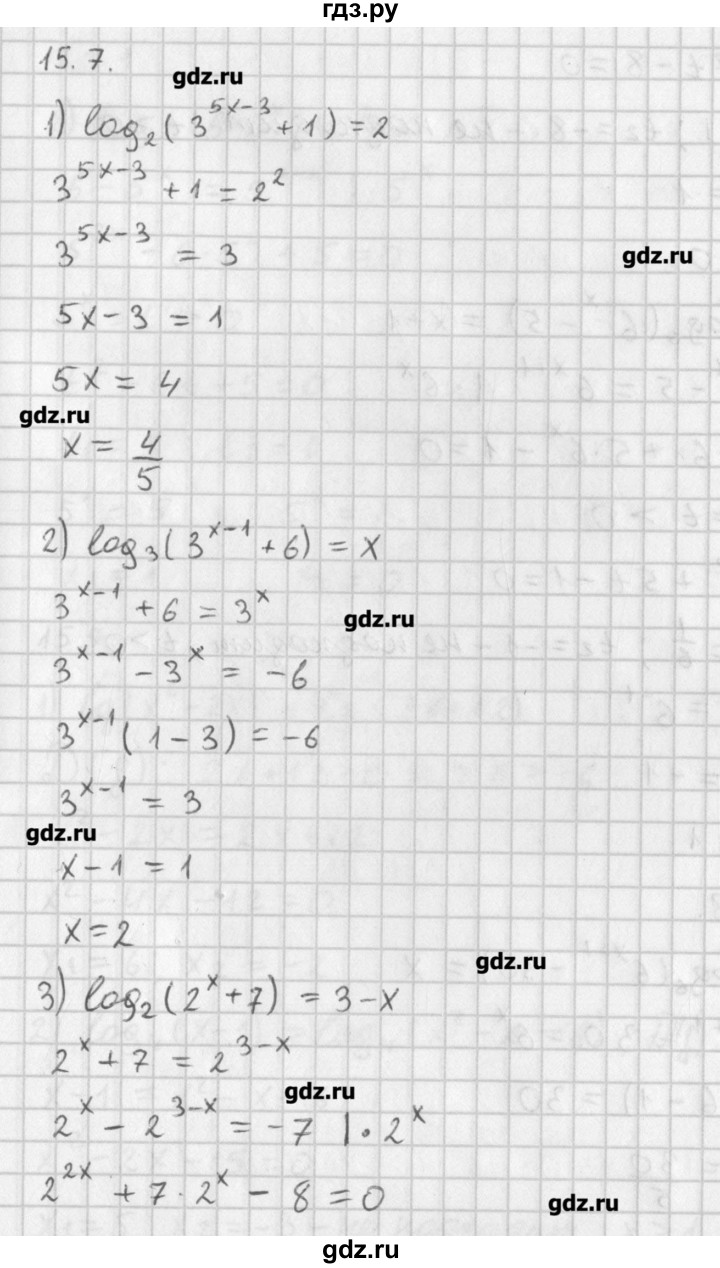 гдз.ру
15.7.
gdz.ru
1) log₂(3^(5x-3) + 1) = 2
3^(5x-3) + 1 = 2²
3^(5x-3) = 3
gdz.ru
5x - 3 = 1
5x = 4
gdz.ru
x = 4/5
2) log₃(3^(x-1) + 6) = x
3^(x-1) + 6 = 3^x
gdz.ru
3^(x-1) - 3^x = -6
3^(x-1) (1 - 3) = -6
3^(x-1) = 3
gdz.ru
x - 1 = 1
x = 2
gdz.ru
3) log₂(2^x + 7) = 3 - x
2^x + 7 = 2^(3-x)
gdz.ru
2^x - 2^(3-x) = -7 | · 2^x
2^(2x) + 7 · 2^x - 8 = 0
gdz.ru
gdz.ru